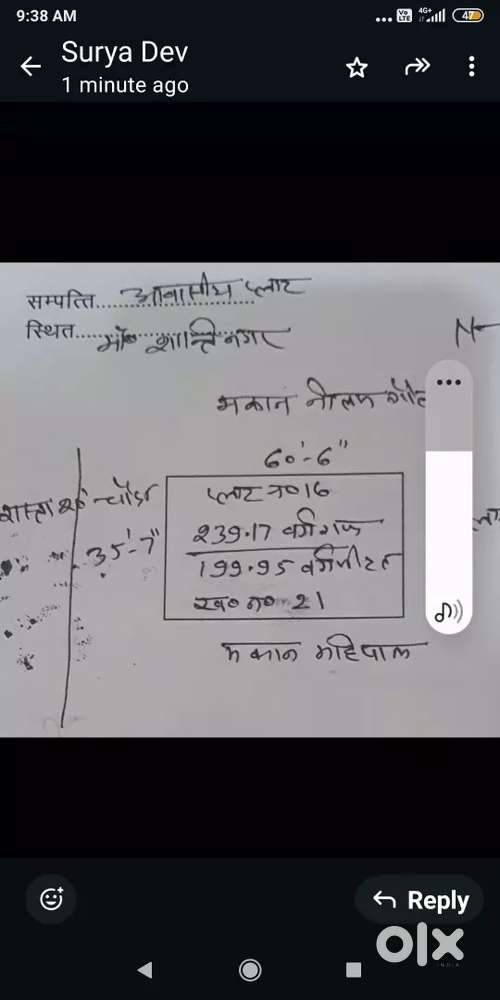 9:38 AM
Vo LTE 4G+ 47
Surya Dev
1 minute ago
सम्पत्ति.... आवासीय प्लाट
स्थित.... मो० शान्ति नगर
N
मकान नीलम
60'-6"
रास्ता 20' चौड़ा
प्लाट न० 16
35'-7"
239.17 वर्ग गज
199.95 वर्ग मीटर
ख० न० 21
मकान महिपाल
Reply
olx
INDIA